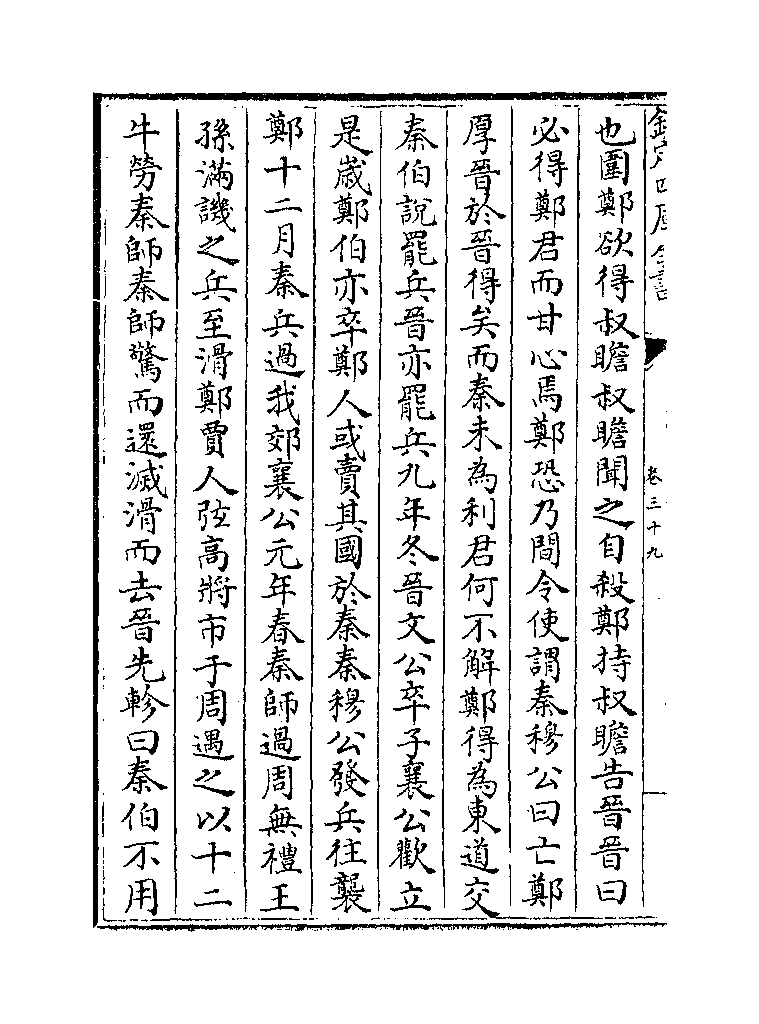 欽定四庫全書
卷三十九
也圍鄭欲得叔瞻叔瞻聞之自殺鄭持叔瞻告晉晉曰
必得鄭君而甘心焉鄭恐乃間令使謂秦穆公曰亡鄭
厚晉於晉得矣而秦未為利君何不解鄭得為東道交
秦伯說罷兵晉亦罷兵九年冬晉文公卒子襄公歡立
是歲鄭伯亦卒鄭人或賣其國於秦秦穆公發兵往襲
鄭十二月秦兵過我郊襄公元年春秦師過周無禮王
孫滿譏之兵至滑鄭賈人弦高將市于周遇之以十二
牛勞秦師秦師驚而還滅滑而去晉先軫曰秦伯不用